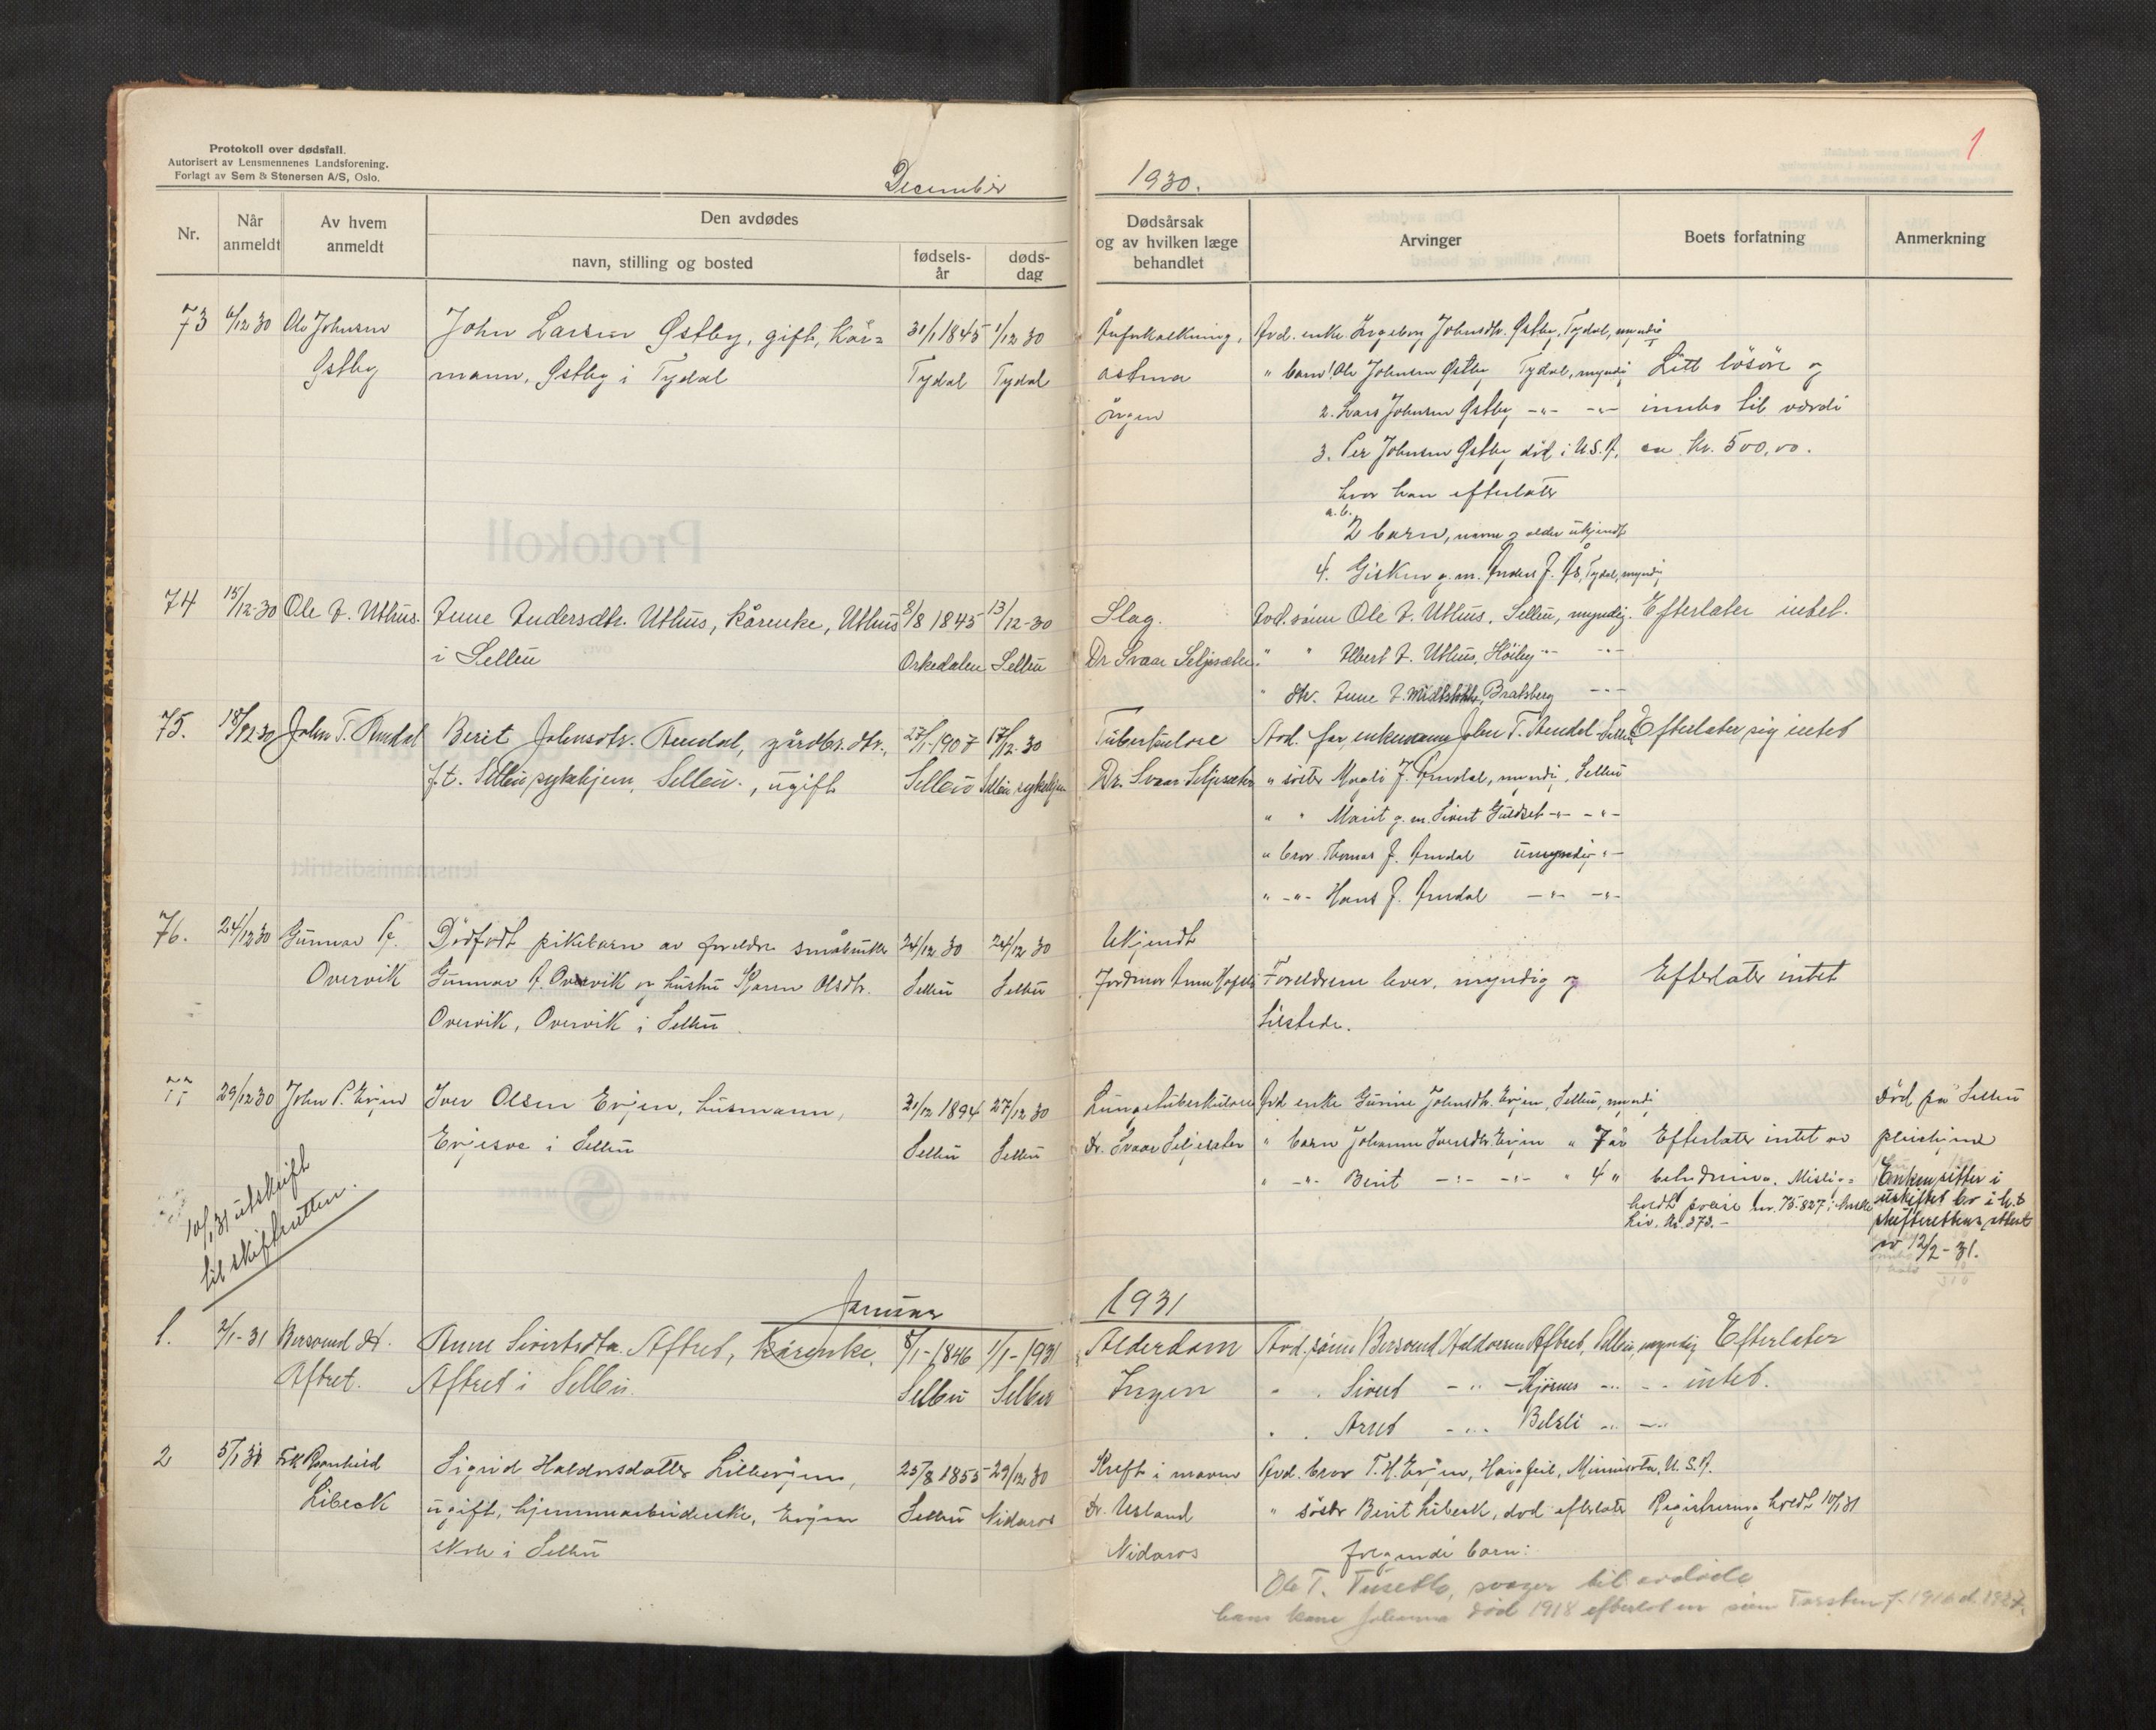 Protokoll over dødsfall.
Autorisert av Lensmennenes Landsforening.
Forlagt av Sem & Stenersen A/S, Oslo.
December 1930.
1
Nr.
Når anmeldt
Av hvem anmeldt
Den avdødes
navn, stilling og bosted
fødsels-år
døds-dag
Dødsårsak og av hvilken læge behandlet
Arvinger
Boets forfatning
Anmerkning
73 6/12 30 Ole Johnsen Østby
John Larsen Østby, gift, kår=
mann, Østby i Tydal
31/1 1845 Tydal
1/12 30 Tydal
astma
Ingen
Avd. enke Ingeborg Johnsdtr. Østby, Tydal, myndig
" barn 1. Ole Johnsen Østby Tydal, myndig
2. Lars Johnsen Østby -"- -"-
3. Per Johnsen Østby död i U.S.A.
hvor han efterlater
a.b.
2 barn, navn og alder ukjendt
4. Gisken g.m. Anders J. Ås, Tydal, myndig
Litt lösöre og
innbo til værdi
ca. kr. 500,00.
74 15/12-30 Ole I. Uthus.
Anne Andersdtr. Uthus, kårenke, Uthus
i Selbu
8/8 1845 Orkedalen
13/12-30 Selbu
Slag.
Dr Svaar Seljesæter
Avd. sönn Ole I. Uthus, Selbu, myndig.
" " Albert I. Uthus, Höiby -"- -"-
" dtr. Anne I. Bratsberg -"-
Efterlater intet.
75. 18/12 30 John T. Amdal
Berit Johnsdtr. Amdal, gårdbr. dtr.,
f.t. Selbu sykehjem, Selbu., ugift
27/1 1907 Selbu
17/12-30 Selbu sykehjem
Tuberkulose
Dr. Svaar Seljesæter
Avd. far, enkemann John T. Amdal Selbu
" söster Magli J. Amdal, myndig, Selbu
" " Marit g.m. Sivert Guldset -"- -"-
" bror Thomas J. Amdal umyndig -"-
" -"- Hans J. Amdal -"- -"-
Efterlater sig intet
76. 24/12 30 Gunnar P. Overvik
Dödfödt pikebarn av foreldre småbruker
Gunnar P. Overvik og hustru Karen Olsdtr.
Overvik, Overvik i Selbu
24/12 30 Selbu
24/12 30 Selbu
Ukjendt
Jordmor Anna
Foreldrene lever, myndig og
tilstede.
Efterlater intet
77 29/12 30 John P. Evjen
Iver Olsen Evjen, husmann,
Evjesve i Selbu
31/12 1894 Selbu
27/12 30 Selbu
Lungetuberkulose
Dr. Svaar Seljesæter
Avd enke Gurine Johnsdtr. Evjen, Selbu, myndig
" barn Johanna Iversdtr. Evjen " 7 år
" -"- Berit -"- -"- " 4 "
Efterlater intet av
betydning.
nr. 75.827
kr. 373.-
Död på Selbu
pleiehjem
Enken sitter i
uskiftet bo i h.t.
skifterettens attest
av 12/2-31.
10/1 31 utskrift
til skifteretten.
Januar 1931
1. 2/1-31 Bersvend H. Aftret.
Anne Sivertsdtr. Aftret, kårenke,
Aftret i Selbu.
8/1-1846 Selbu
1/1-1931 Selbu
Alderdom
Ingen
Avd. sönn Bersvend Haldorsen Aftret, Selbu, myndig
" " Sivert -"- Kjösnes -"- -"-
" " Arnt -"- Belsli -"- -"-
Efterlater
intet.
2 5/1 31 Frk Ragnhild Libeck
Sigrid Haldorsdatter Lillevjen,
ugift, hjemmearbeiderske, Evjen
skole i Selbu
25/8 1855 Selbu
29/12 30 Nidaros
Kreft i maven
Dr. Usland
Nidaros
Avd. bror T. H. Evjen, Minnesota, U.S.A.
" söster Berit Libeck, död efterlater
fölgende barn:
Registrering holdt 10/1 31
Ole T. Tuseth, svoger til avdöde
hans kone Johanna död 1918 efterlot en sönn Torsten f. 1916 d. 1927.